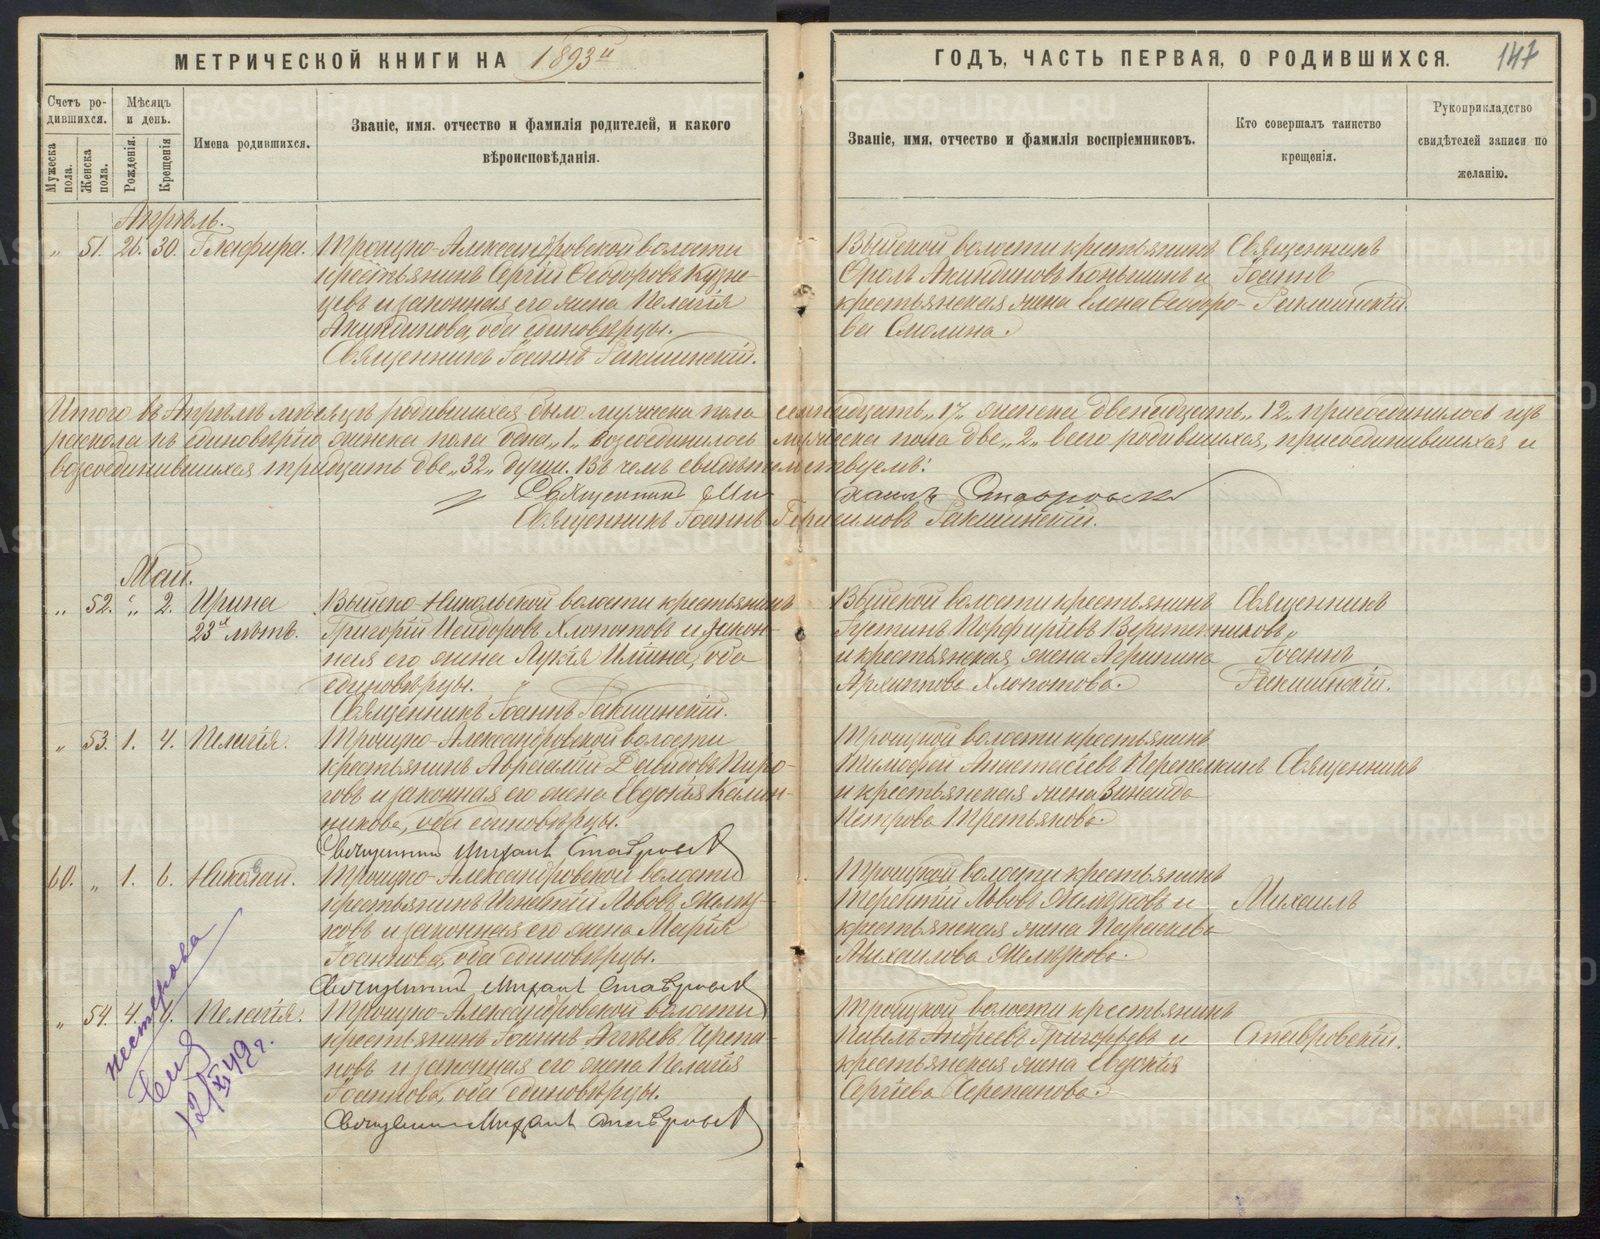 МЕТРИЧЕСКОЙ КНИГИ НА 1893й
ГОДЪ, ЧАСТЬ ПЕРВАЯ, О РОДИВШИХСЯ.
147
Счетъ ро-
дившихся.
Мѣсяцъ
и день.
Мужеска
пола.
Женска
пола.
Рожденія.
Крещенія
Имена родившихся.
Званіе, имя. отчество и фамилія родителей, и какого
вѣроисповѣданія.
Званіе, имя, отчество и фамилія воспріемниковъ.
Кто совершалъ таинство
крещенія.
Рукоприкладство
свидѣтелей записи по
желанію.
Апрѣль.
„ 51. 26. 30. Глафира.
Троицко-Александровской волости
крестьянинъ Сергій Ѳеодоровъ Кузне-
цевъ и законная его жена Пелагія
Акиндинова, оба единовѣрцы.
Священникъ Іоаннъ Ракшинскій.
Выйской волости крестьянинъ
Фролъ Акиндиновъ Коньшинъ и
крестьянская жена Елена Ѳеодоро-
ва Смолина.
Священникъ
Іоаннъ
Ракшинскій.
Итого въ Апрѣлѣ мѣсяцѣ родившихся было мужеска пола семнадцать „17„ женска двенадцать „12„ присоединилось изъ
раскола къ единовѣрію женска пола одна „1„ возсоединилось мужеска пола две „2„ всего родившихся, присоединившихся и
возсоединившихся тридцать две „32„ души. Въ чемъ свидѣтельствуемъ:
Священникъ Михаилъ Ставровскій
Священникъ Іоаннъ Герасимовъ Ракшинскій.
Май.
„ 52. „ 2. Ирина
23х лѣтъ.
Выйско-Никольской волости крестьянинъ
Григорій Исидоровъ Хлопотовъ и закон-
ная его жена Лукія Ильина, оба
единовѣрцы.
Священникъ Іоаннъ Ракшинскій.
Выйской волости крестьянинъ
Іустинъ Порфирьевъ Веретенниковъ
и крестьянская жена Агрипина
Архипова Хлопотова.
Священникъ
Іоаннъ
Ракшинскій.
„ 53. 1. 4. Пелагія.
Троицко-Александровской волости
крестьянинъ Авраамій Давидовъ Пиро-
говъ и законная его жена Евдокія Калин-
никова, оба единовѣрцы.
Священникъ Михаилъ Ставровскій
Троицкой волости крестьянинъ
Тимофей Анастасіевъ Перепалкинъ
и крестьянская жена Зинаида
Петрова Третьякова.
Священникъ
60. „ 1. 6. Николай.
Троицко-Александровской волости
крестьянинъ Игнатій Львовъ Желѣз-
ковъ и законная его жена Марія
Іоаннова, оба единовѣрцы.
Священникъ Михаилъ Ставровскій
Троицкой волости крестьянинъ
Терентій Львовъ Желѣзковъ и
крестьянская жена Параскева
Михаилова Желѣзкова.
Михаилъ
„ 54. 4. 7. Пелагія.
Троицко-Александровской волости
крестьянинъ Іоаннъ Аггеевъ Черепа-
новъ и законная его жена Пелагія
Іоаннова, оба единовѣрцы.
Священникъ Михаилъ Ставровскій
Троицкой волости крестьянинъ
Павелъ Андреевъ Григорьевъ и
крестьянская жена Евдокія
Сергіева Черепанова.
Ставровскій.
нестерова
12/XI 49 г.
METRIKI.GASO-URAL.RU